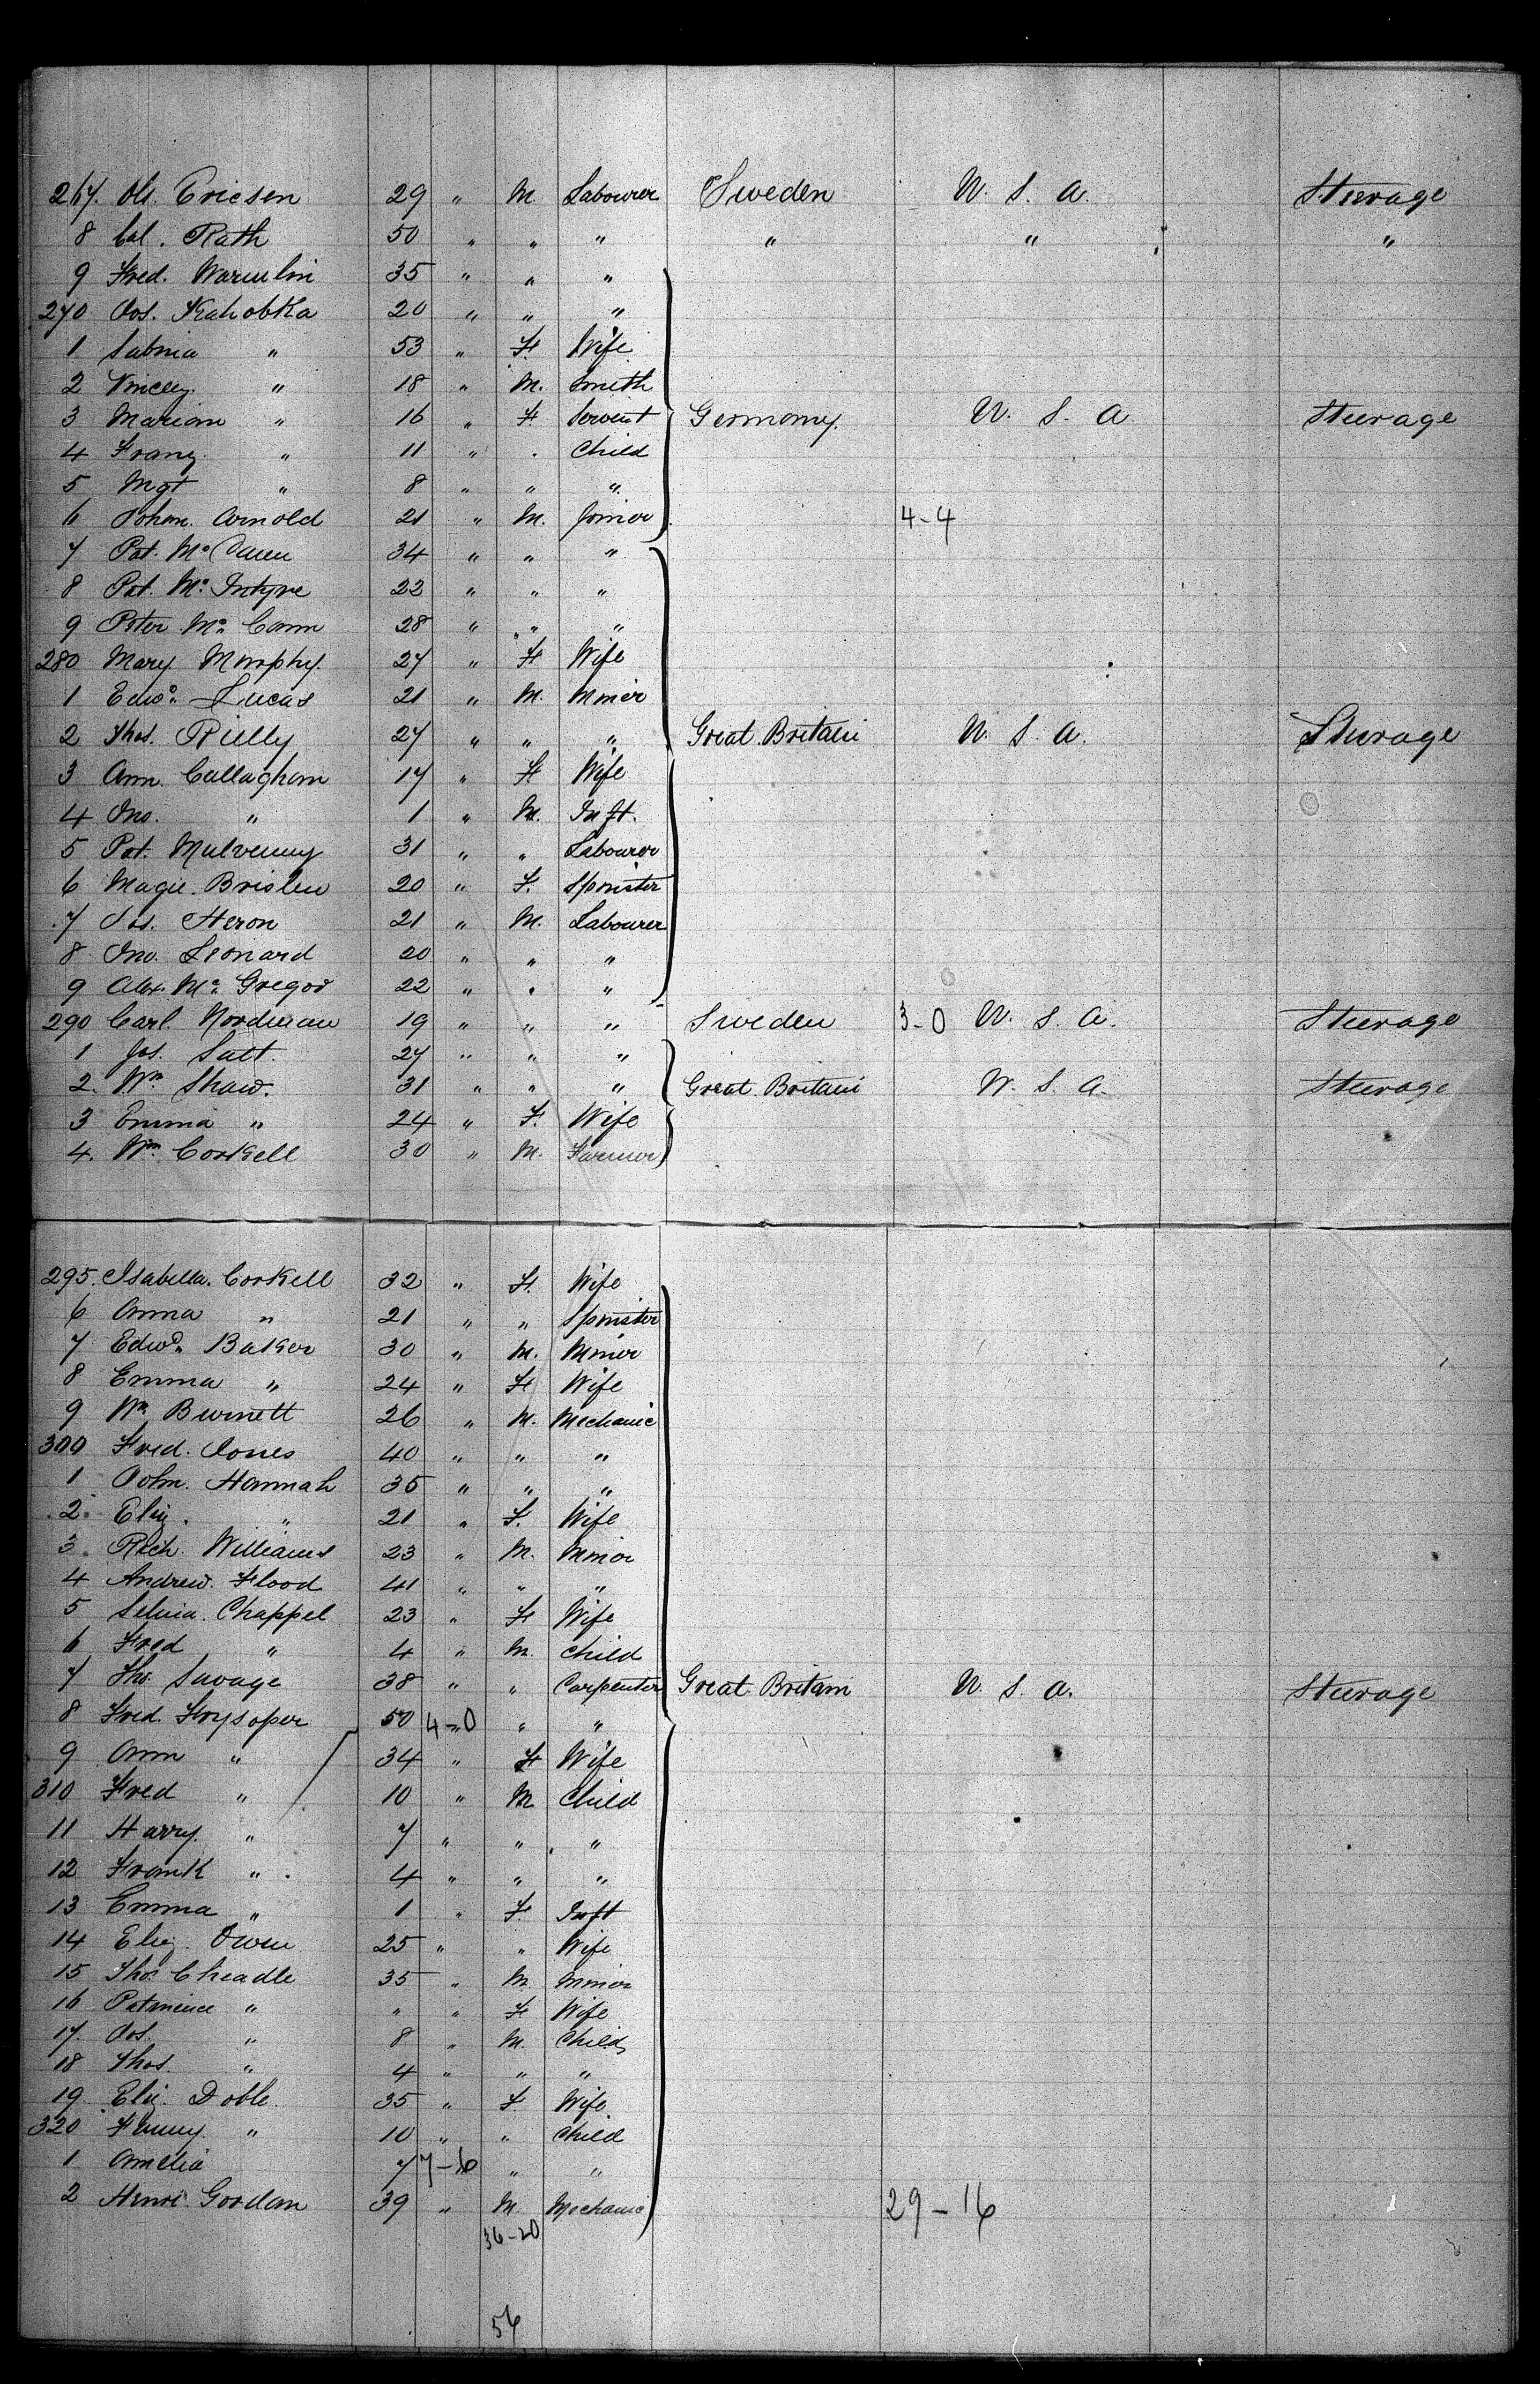 267. Ols. Ericsen 29 " M. Labourer Sweden U. S. A. Steerage
8 Cal. Rath 50 " " " " " "
9 Fred. Warmlin 35 " " "
270 Jos. Kahobka 20 " " "
1 Sabina " 53 " F. Wife
2 Vincez. " 18 " M. Smith
3 Mariam " 16 " F. Servant Germany. U. S. A. Steerage
4 Franz. " 11 " . Child
5 Mgt " 8 " " "
6 Johan. Arnold 21 " M. Joiner 4-4
7 Pat. Mc 34 " " "
8 Pat. Mc Intyre 22 " " "
9 Peter Mc Cann 28 " " "
280 Mary Murphy. 27 " F. Wife
1 Edwd. Lucas 21 " M. Miner
2 Thos. Rielly 27 " " " Great Britain U. S. A. Steerage
3 Ann. Callaghan 17 " F. Wife
4 Jno. " 1 " M. Inft.
5 Pat. Mulvenny 31 " " Labourer
6 Magie. Brislen 20 " F. Spinster
7 Jas. Heron 21 " M. Labourer
8 Jno. Leonard 20 " " "
9 Alex. Mc Gregor 22 " " "
290 Carl. Nordman 19 " " " Sweden 3-0 U. S. A. Steerage
1 Jos. Salt. 27 " " "
2. Wm Shaw. 31 " " " Great Britain U. S. A. Steerage
3 Emma " 24 " F. Wife
4. Wm Corkell 30 " M. Farmer
295. Isabella. Corkell 32 " F. Wife
6 Anna " 21 " " Spinster
7 Edwd. Baker 30 " M. Miner
8 Emma " 24 " F. Wife
9 Wm Burnett 26 " M. Mechanic
300 Fred. Jones 40 " " "
1 John. Hannah 35 " " "
2. Eliz. " 21 " F. Wife
3. Rich. Williams 23 " M. Miner
4 Andrew. Flood 41 " " "
5 Selina. Chappel 23 " F. Wife
6 Fred " 4 " M. Child
7 Tho. Savage 38 " " Carpenter Great Britain U. S. A. Steerage
8 Fred. Frysoper 50 4-0 " " "
9 Ann " 34 " F. Wife
310 Fred " 10 " M Child
11 Harry. " 7 " " "
12 Frank " 4 " " "
13 Emma " 1 " F. Inft
14 Eliz. Owen 25 " " Wife
15 Thos Cheadle 35 " M. Miner
16 " " " F. Wife
17. Jos. " 8 " M. Child
18 Thos. " 4 " " "
19 Eliz. Doble. 35 " F. Wife
320 " 10 " " Child
1 Amelia 7 7-6 " " "
2 Henri Gordan 39 " M. Mechanic 29-16
36-20
56